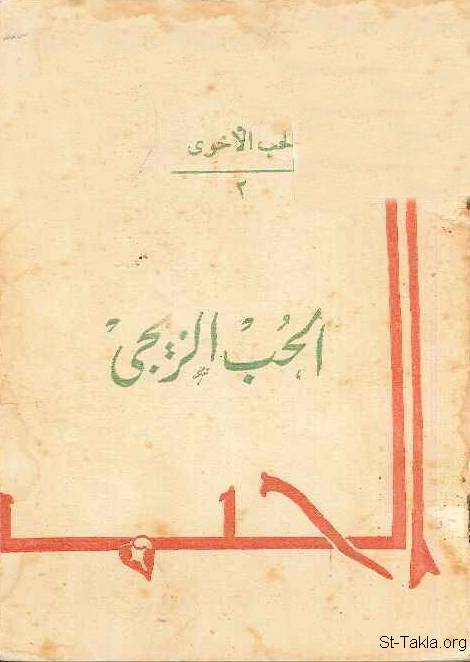 لحب الأخوى
٢
الحُب الزيجى
الحب
St-Takla.org